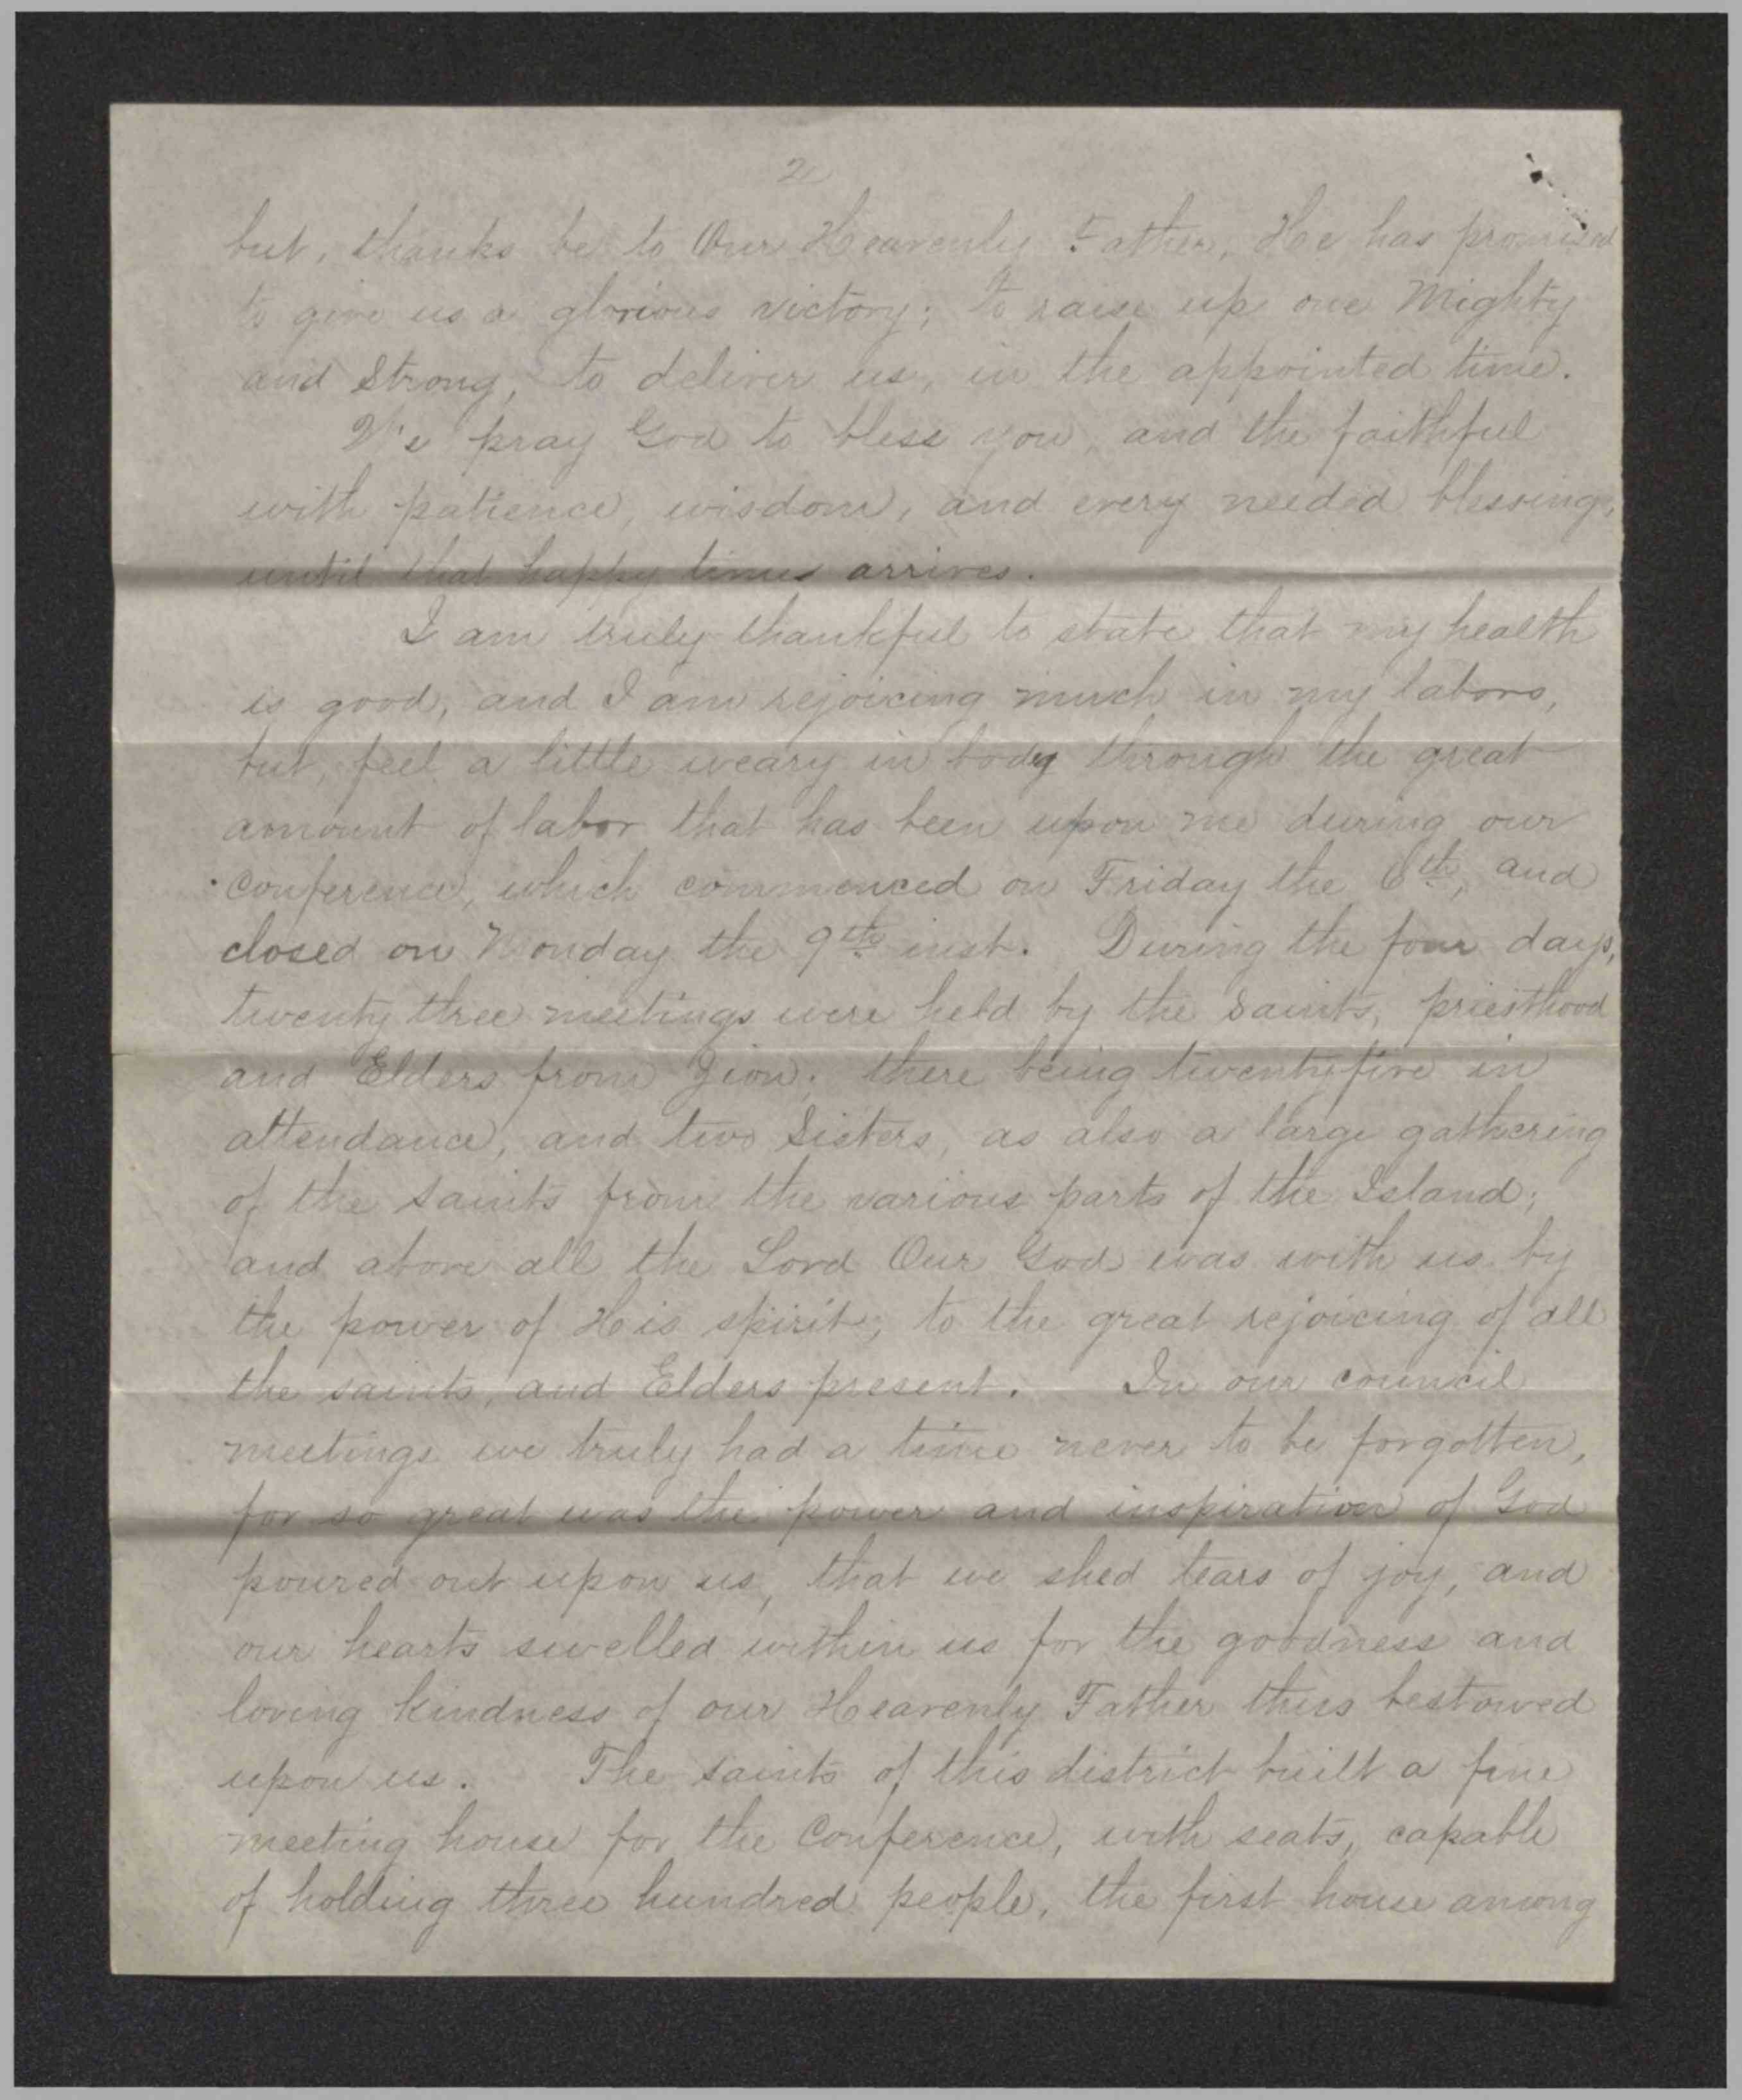 2
but, thanks be to Our Heavenly Father, He has promised
to give us a glorious victory; to raise up one Mighty
and Strong, to deliver us, in the appointed time.
We pray God to bless you, and the faithful
with patience, wisdom, and every needed blessing,
until that happy time arrives.
I am truly thankful to state that my health
is good, and I am rejoicing much in my labors,
but, feel a little weary in body through the great
amount of labor that has been upon me during our
Conference, which commenced on Friday the 6th, and
closed on Monday the 9th inst. During the four days,
twenty three meetings were held by the Saints, priesthood
and Elders from Zion; there being twenty five in
attendance, and two Sisters, as also a large gathering
of the Saints from the various parts of the Island;
and above all the Lord Our God was with us by
the power of His spirit, to the great rejoicing of all
the saints, and Elders present. In our council
meetings we truly had a time never to be forgotten,
for so great was the power and inspiration of God
poured out upon us, that we shed tears of joy, and
our hearts swelled within us for the goodness and
loving kindness of our Heavenly Father thus bestowed
upon us. The Saints of this district built a fine
meeting house for the Conference, with seats, capable
of holding three hundred people, the first house among